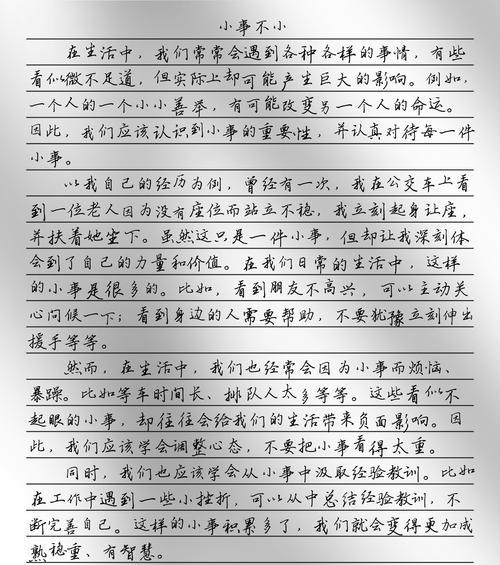 小事不小
在生活中，我们常常会遇到各种各样的事情，有些
看似微不足道，但实际上却可能产生巨大的影响。例如，
一个人的一个小小善举，有可能改变另一个人的命运。
因此，我们应该认识到小事的重要性，并认真对待每一件
小事。
以我自己的经历为例，曾经有一次，我在公交车上看
到一位老人因为没有座位而站立不稳，我立刻起身让座，
并扶着她坐下。虽然这只是一件小事，但却让我深刻体
会到了自己的力量和价值。在我们日常的生活中，这样
的小事是很多的。比如，看到朋友不高兴，可以主动关
心问候一下；看到身边的人需要帮助，不要犹豫立刻伸出
援手等等。
然而，在生活中，我们也经常会因为小事而烦恼、
暴躁。比如等车时间长、排队人太多等等。这些看似不
起眼的小事，却往往会给我们的生活带来负面影响。因
此，我们应该学会调整心态，不要把小事看得太重。
同时，我们也应该学会从小事中汲取经验教训。比如
在工作中遇到一些小挫折，可以从中总结经验教训，不
断完善自己。这样的小事积累多了，我们就会变得更加成
熟稳重、有智慧。